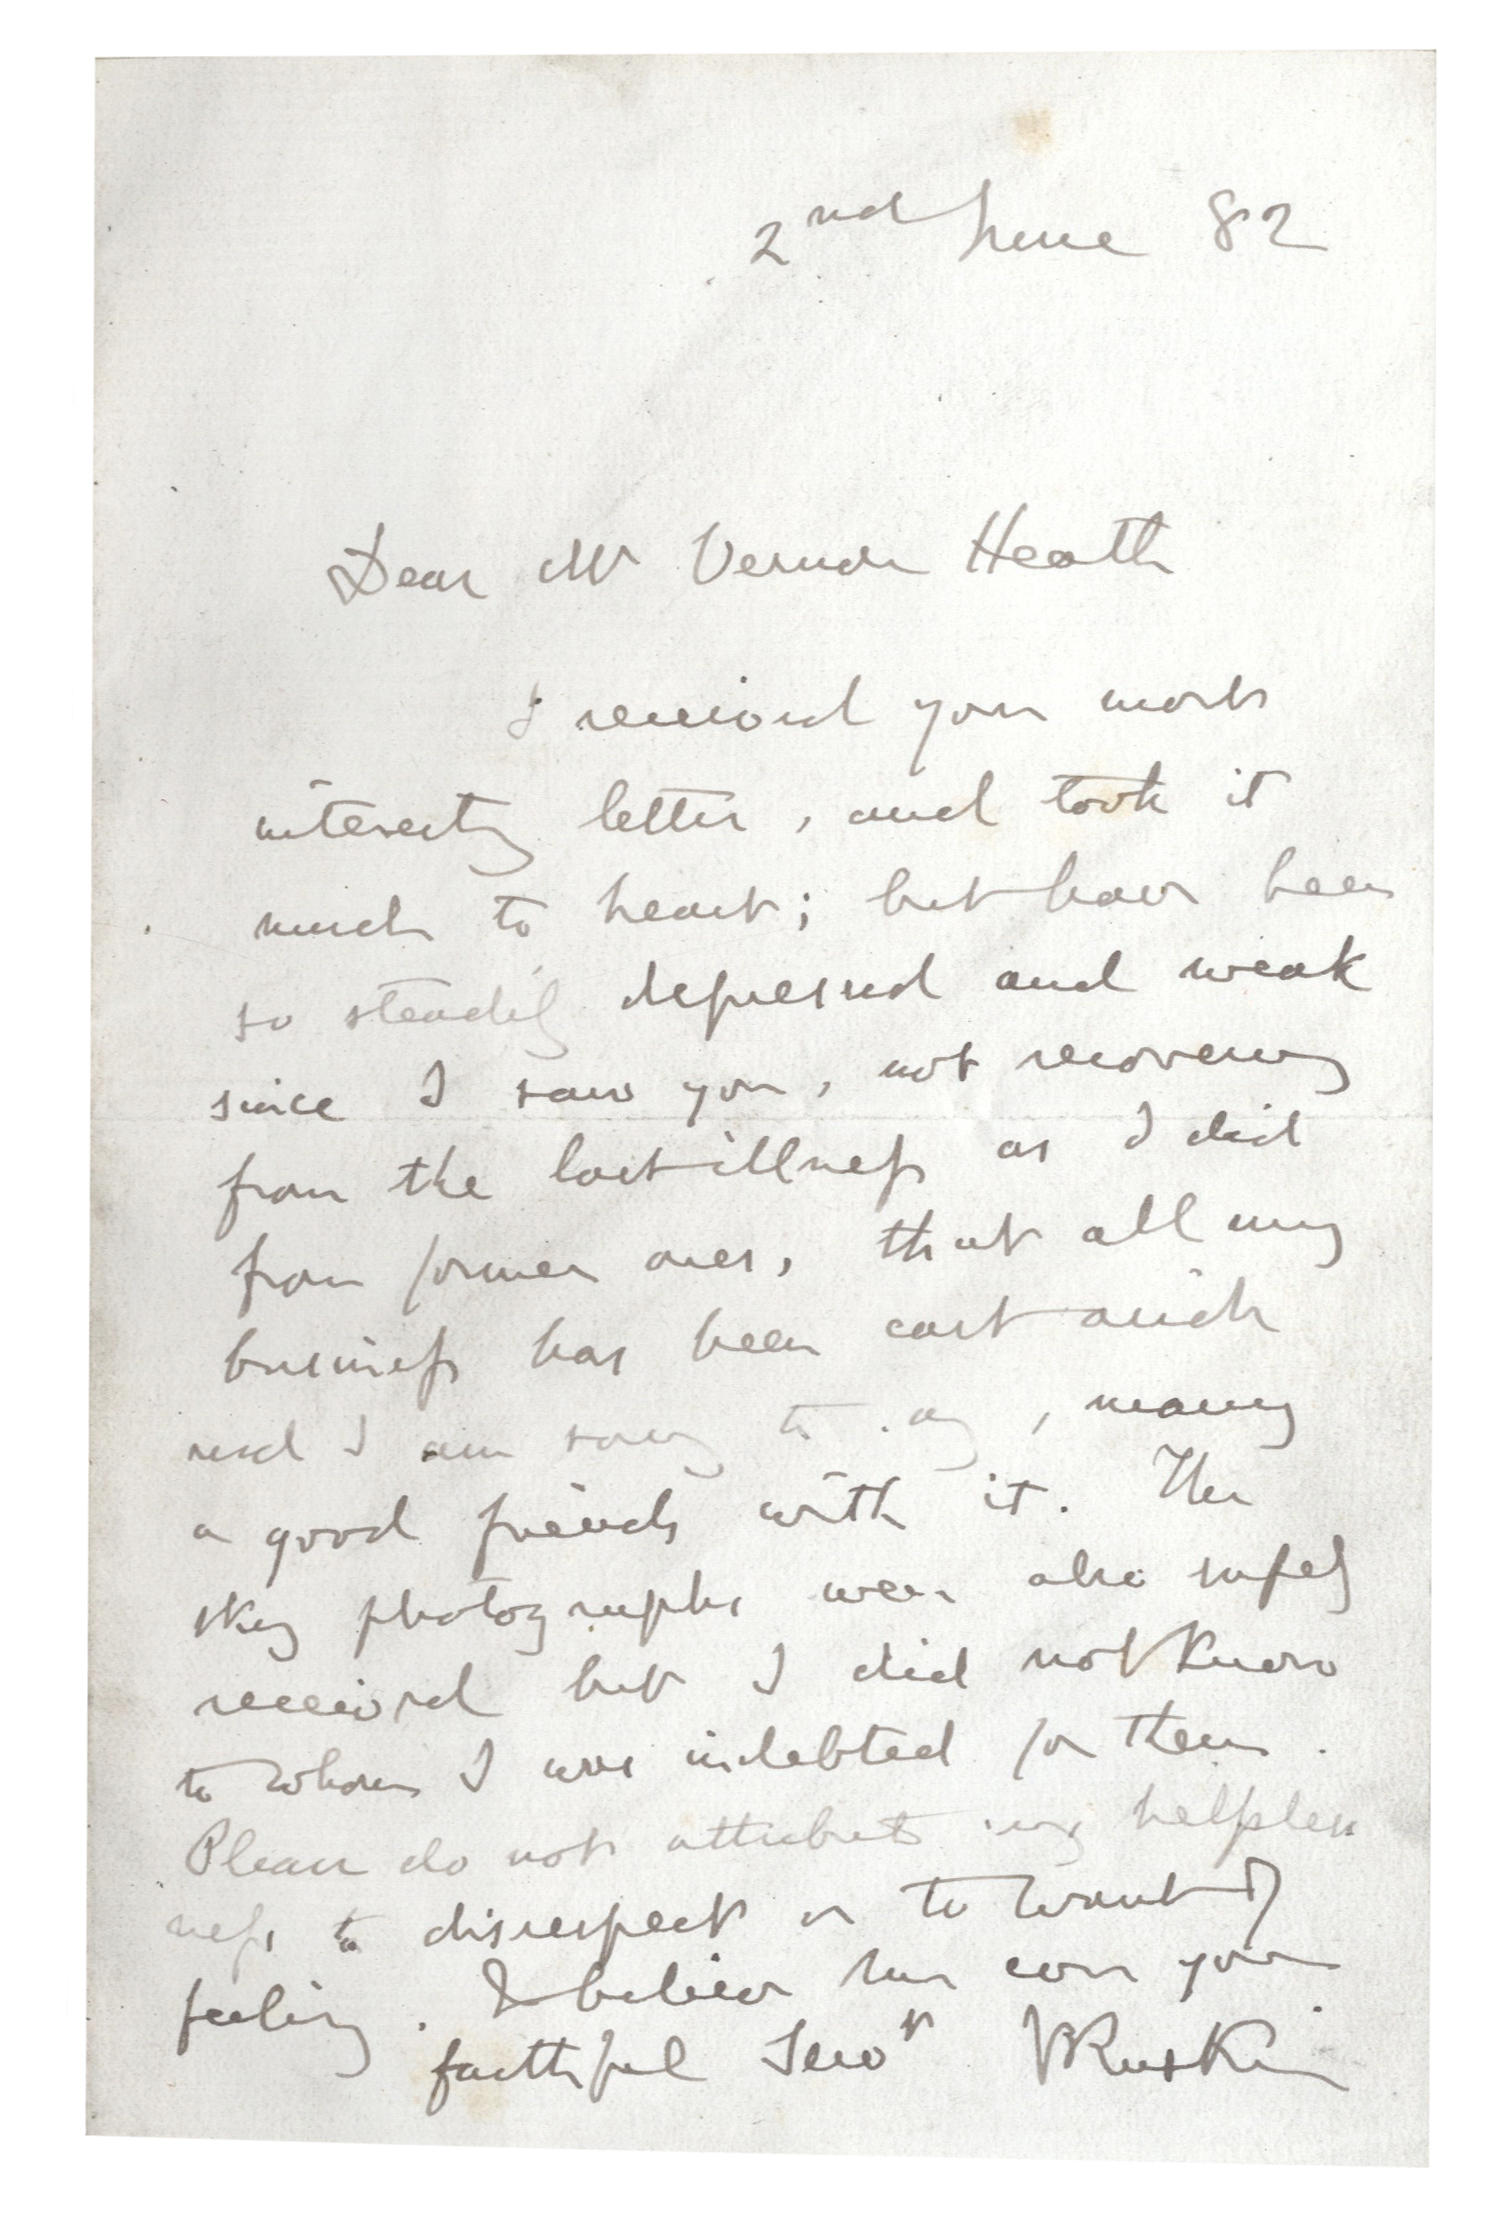 2nd June 82
Dear Mr Vernon Heath
I received your most
interesting letter, and took it
much to heart; but have been
so steadily depressed and weak
since I saw you, not recovering
from the last illness as I did
from former ones, that all my
business has been cast aside
and I am sorry to say, many
a good friends with it. The
sky photographs were also safely
received but I did not know
to whom I was indebted for them.
Please do not attribute my helpless
ness to disrespect or to want of
feeling. & believe me ever your
faithful Servt JRuskin